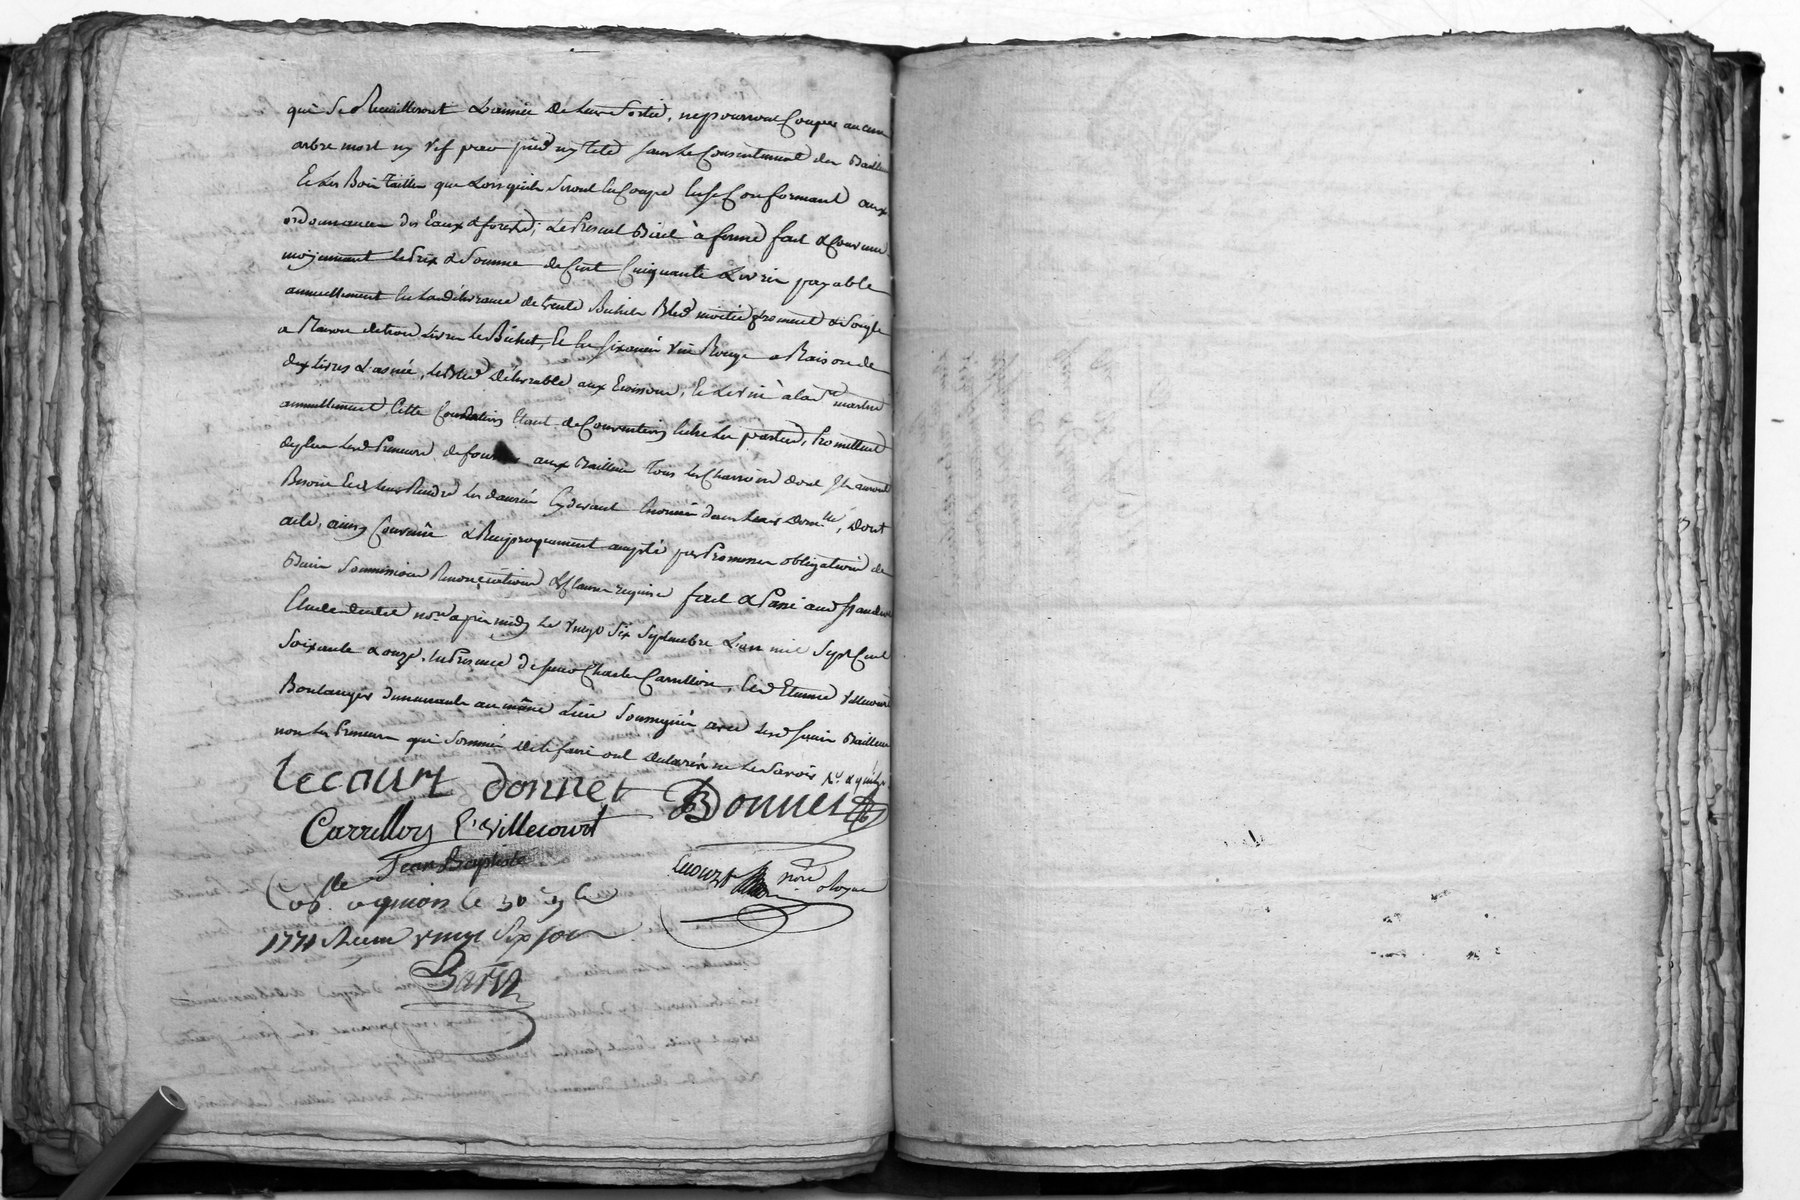 qui se Recuilleront L'année de leur Sortie, ne pourront Couper aucun
arbre mort ny vif par pied ny tete sans le Consentement des Bailleurs
Et les Bois taillis que Lorsquils Seront en Coupe en se Conformant aux
ordonnances des Eaux & forests; Le Present Bail à ferme fait & Convenu
moyennant le Prix & Somme de Cent Cinquante Livres payable
annuellement en la délivrance de trente Bichets Bled moitié froment & Seigle
a Raison de trois Livres le Bichet, Et en six anné vin Rouge a Raison de
dix livres L'asnée, le Bled délivrable aux moissons, Et le vin à la St martin
annuellement Cette Condition Etant de Convention Entre les parties, Promettent
deplus lesd Preneurs de fournir aux Bailleurs tous les Charrois dont ils auront
Besoin Et de leur Rendre les danrées Cy devant Enoncées dans leurs Dom.lle, Dont
acte, ainsy Convenu & Reciproquement accepté par Promesses obligations de
Biens Soummissions Renonciations & Clauses requises fait & Passé aud
Etude dudit nore après midy Le vingt Six Septembre L'an mil Sept Cent
Soixante & onze. En Presence de sieur Charles Carrillon, Et d'Etienne Villecourt
Boulanger demeurants au même Lieu Soussignés avec lesd sieurs Bailleurs
non les Preneurs qui Sommés de le faire ont declarés ne le Savoir
lecourt donnet Donnet
Carrillon E. Villecourt
Jean Baptiste
Lecourt nore
Con.lle a le 30 7bre
1771 Recu vingt Six Sols